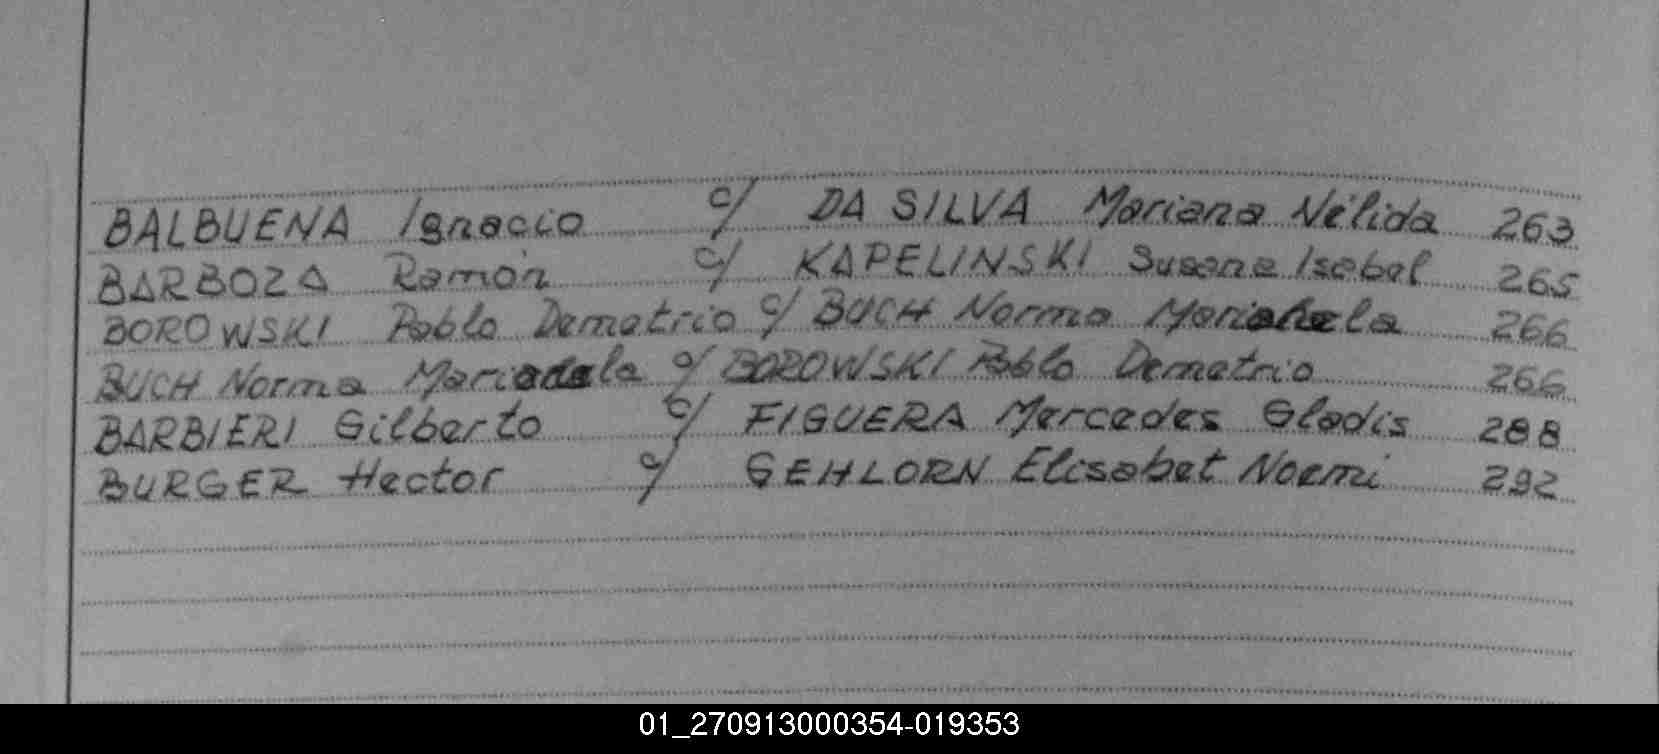 BALBUENA Ignacio c/ DA SILVA Mariana Nélida 263
BARBOZA Ramón c/ KAPELINSKI Susana Isabel 265
BOROWSKI Pablo Demetrio c/ BUCH Norma 266
BUCH Norma c/ BOROWSKI Pablo Demetrio 266
BARBIERI Gilberto c/ FIGUERA Mercedes Gladis 288
BURGER Hector c/ GEHLORN Elisabet Noemi 292
01_270913000354-019353